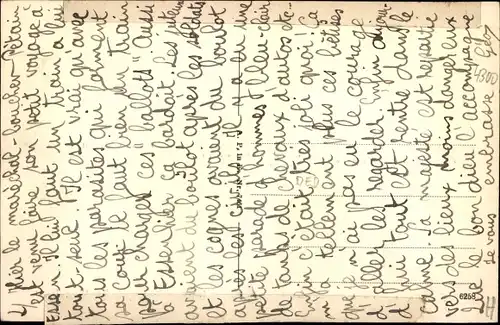 Hier le maréchal-boucher-Pétain
est venu faire son petit voyage à
Essen. Il lui faut un train à lui
tout-seul. Il est vrai qu'avec
tous les parasites qui forment
sa cour il faut bien un train
pour charger ces "ballots". Aussi
à Essen hier ça bardait. Les putains
avaient du boulot après les soldats
et les cognes avaient du boulot
après les civils. Il y a eu une
petite parade d'hommes bleu clair
de tanks de chevaux d'autos etc...
Enfin c'était très joli quoi! Ça
m'a tellement plus ces bêtises
que je n'ai pas eu le courage
d'aller les regarder. Enfin aujour-
d'hui tout est rentré dans le
calme. Sa majesté est repartie
vers des lieux moins dangereux
Que le bon dieu l'accompagne
Je vous embrasse
Géo
1300
DED
6268